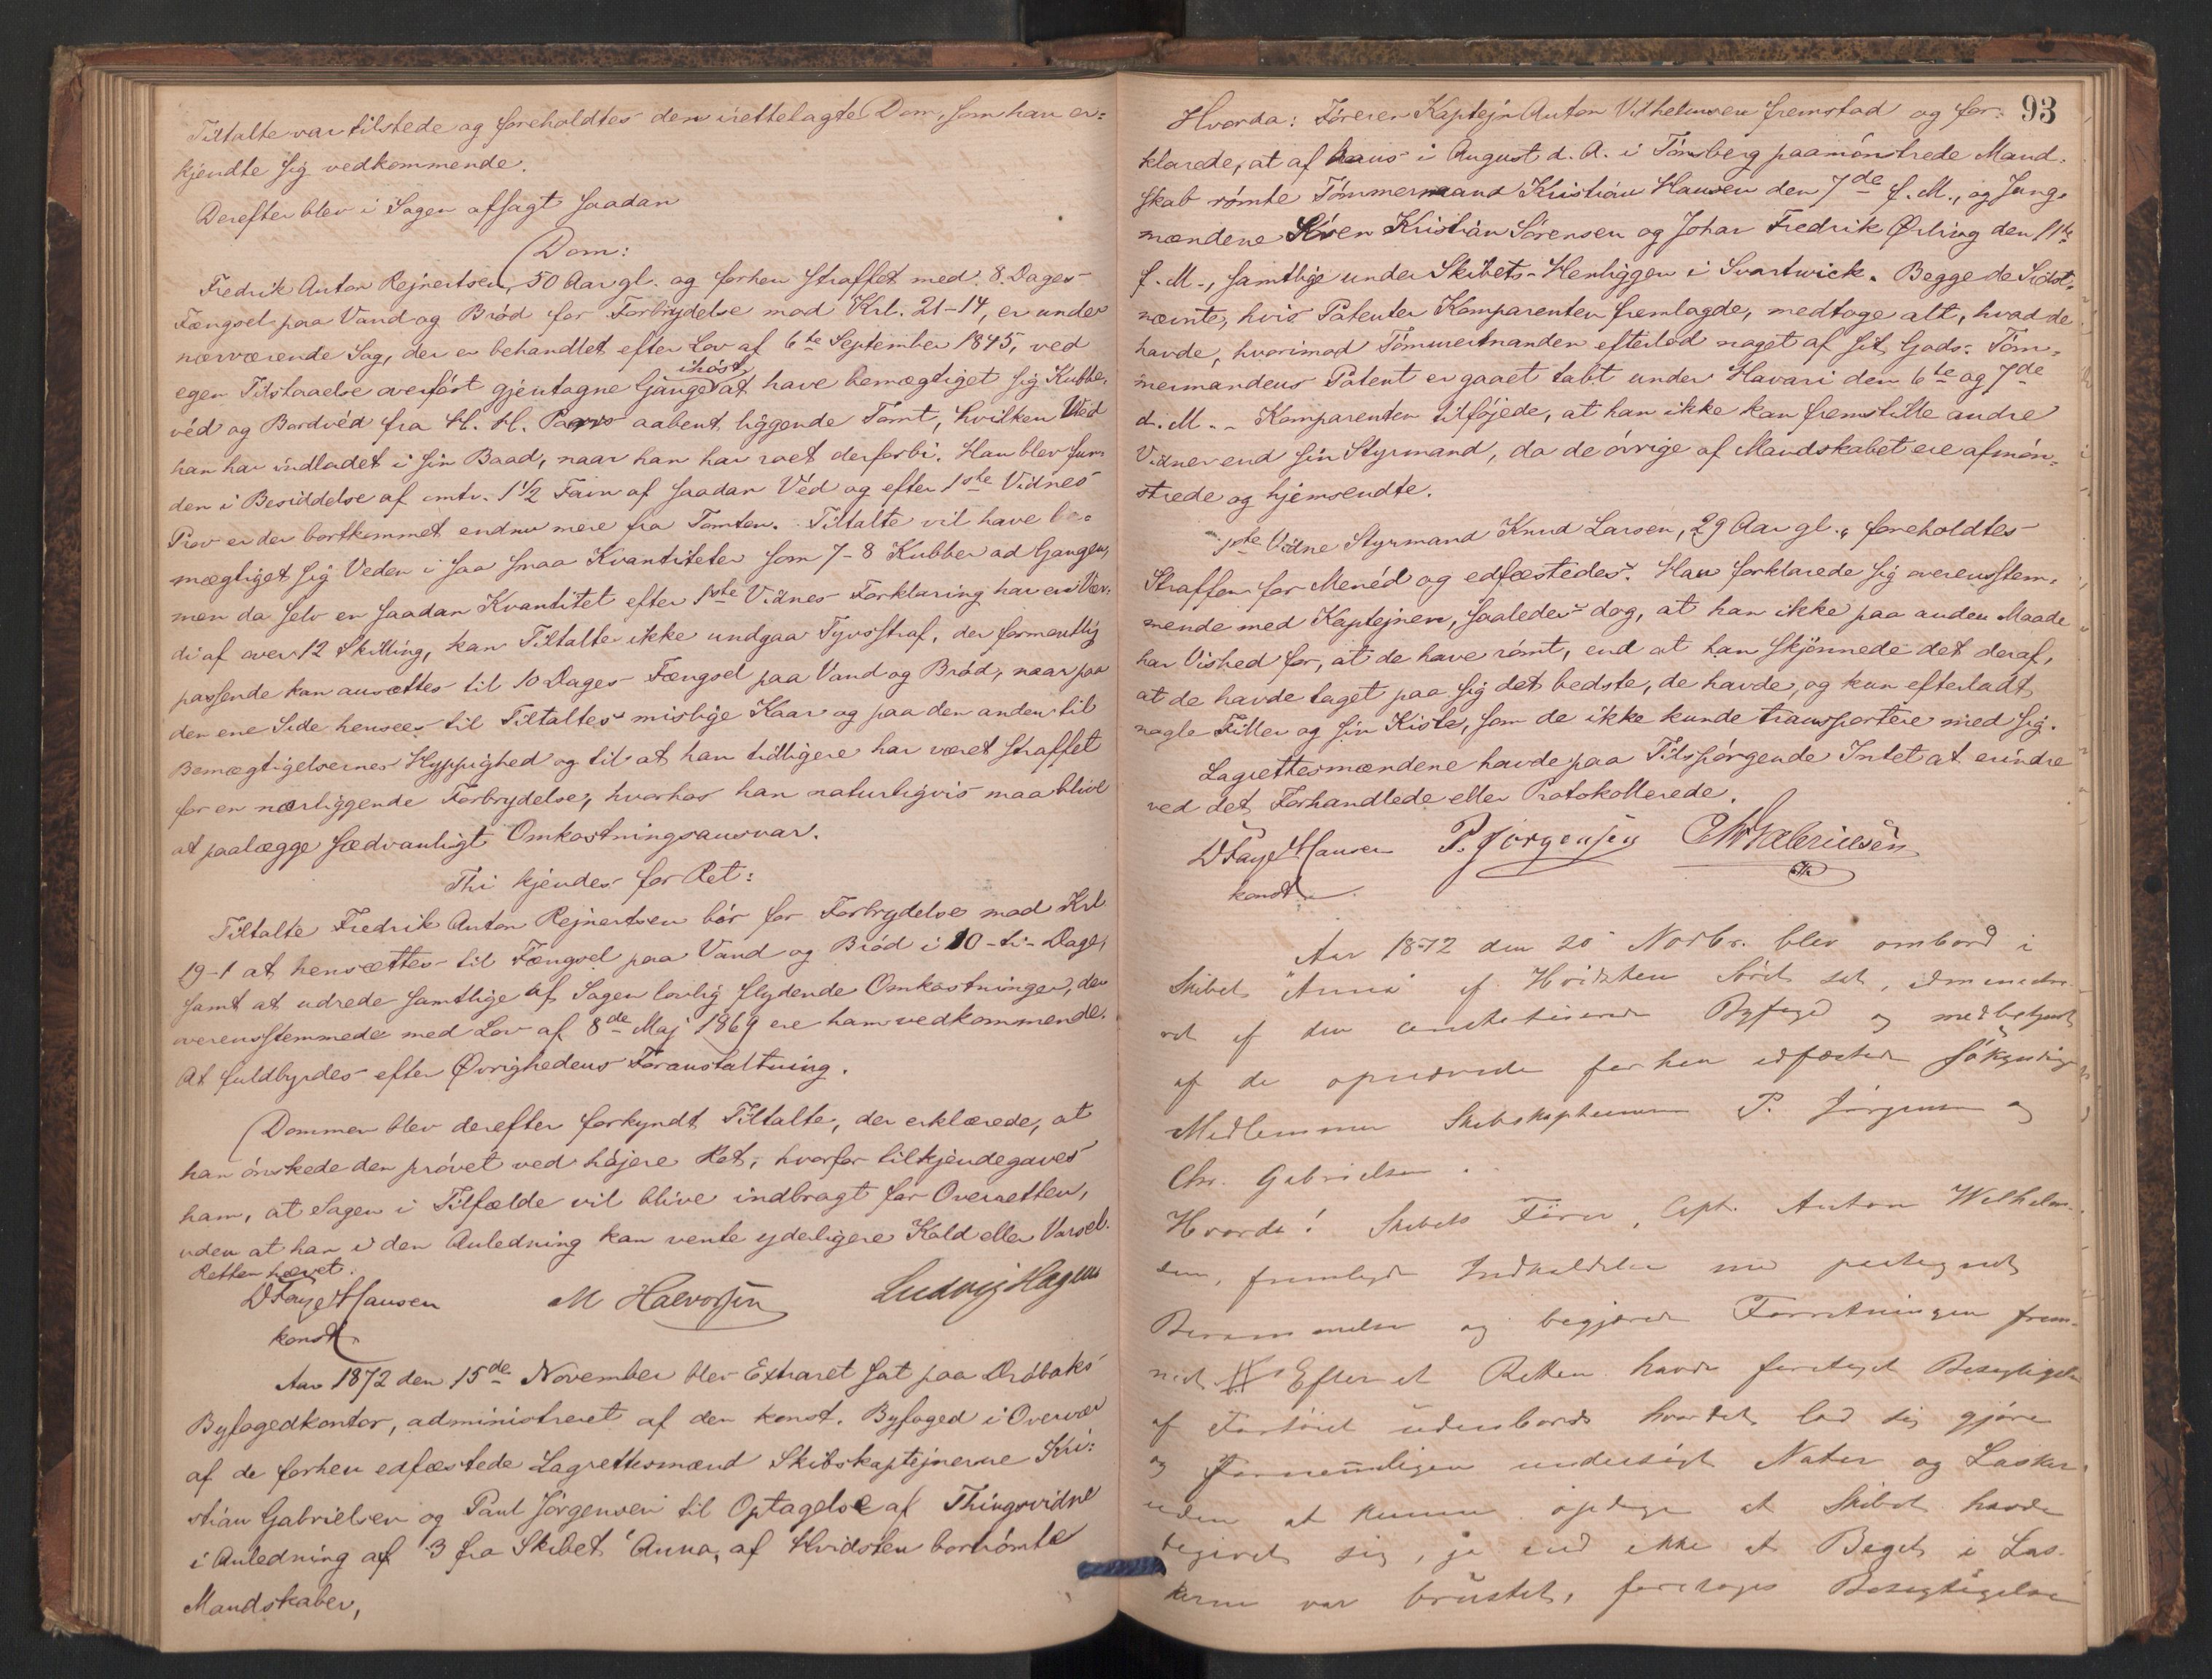 Tiltalte var tilstede og foreholdtes den irettelagte Dom, som han er=
kjendte sig vedkommende.
Derefter blev i Sagen afsagt saadan
Dom:
Fredrik Anton Rejnertsen, 50 Aar gl. og forhen straffet med 8. Dages
Fængsel paa Vand og Brød for Forbrydelse mod Krl. 21-14, er under
nærværende Sag, der er behandlet efter Lov af 6te September 1845, ved
egen Tilstaaelse overført gjentagne Gange ihøst at have bemægtiget sig Kubbe,
véd og Bordvéd fra H. H. Parrs aabent liggende Tomt, hvilken Ved
han har indladet i sin Baad, naar han har roet derforbi. Han blev fun,
den i Besiddelse af omtr. 1 1/2 Favn af saadan Véd og efter 1ste Vidnes
Prov er der bortkommet endnu mere fra Tomten. Tiltalte vil have be=
mægtiget sig Veden i saa smaa Kvantiteter som 7-8 Kubber ad Gangen,
men da selv en saadan Kvantitet efter 1ste Vidnes Forklaring har en Vær,
di af over 12 Skilling, kan Tiltalte ikke undgaa Tyvsstraf, der formentlig
passende kan ansættes til 10 Dages Fængsel paa Vand og Brød, naar paa
den ene Side hensees til Tiltaltes mislige Kaar og paa den anden til
Bemægtigelsernes Hyppighed og til at han tidligere har været straffet
for en nærliggende Forbrydelse, hvorhos han naturligvis maa blive
at paalægge sædvanligt Omkostningsansvar.
Thi kjendes for Ret:
Tiltalte Fredrik Anton Rejnertsen bør for Forbrydelse mod Krl
19-1 at hensættes til Fængsel paa Vand og Brød i 10-ti- Dage,
samt at udrede samtlige af Sagen lovlig flydende Omkostninger, der
overensstemmede med Lov af 8de Maj 1869 ere ham vedkommende.
At fuldbyrdes efter Øvrighedens Foranstaltning.
Dommen blev derefter forkyndt Tiltalte, der erklærede, at
han ønskede den prøvet ved højere Ret, hvorfor tilkjendegaves
ham, at Sagen i Tilfælde vil blive indbragt for Overretten,
uden at han i den Anledning kan vente yderligere Kald eller Varsel.
Retten hævet.
D Faye Hansen M Halvorsen Ludvig Hagen
konst
Aar 1872 den 15de November blev Extraret sat paa Drøbaks
Byfogedkontor, administreret af den konst. Byfoged i Overvær
af de forhen edfæstede Lagrettesmænd Skibskaptejnerne Kri:
stian Gabrielsen og Paul Jørgensen til Optagelse af Thingsvidne
i Anledning af 3 fra Skibet "Anna" af Hvidsten bortrømte
Mandskaber,
93
Hvorda: Føreren Kaptejn Anton Vilhelmsen fremstod og for:
klarede, at af hans i August d. A. i Tønsberg paamønstrede Mand.
skab rømte Tømmermand Kristian Hansen den 7de f. M., og Jung.
mændene Sven Kristian Sørensen og Johan Fredrik Ørling den 11te
f. M., samtlige under Skibets Henliggen i Svartwick. Begge de Sidst,
nævnte, hvis Patenter Komparenten fremlagde, medtoge alt, hvad de
havde, hvorimod Tømmermanden efterlod noget af sit Gods. Töm,
mermandens Patent er gaaet tabt under Havari den 6te og 7de
d. M. - Komparenten tilføjede, at han ikke kan fremstille andre
Vidner end sin Styrmand, da de øvrige af Mandskabet ere afmøn,
strede og hjemsendte.
1ste Vidne Styrmand Knud Larsen, 29 Aar gl., foreholdtes
Straffen for Menéd og edfæstedes. Han forklarede sig overensstem,
mende med Kaptejnen, saaledes dog, at han ikke paa anden Maade
har Vished for, at de have rømt, end at han skjønnede det deraf,
at de havde taget paa sig det bedste, de havde, og kun efterladt
nogle Filler og sin Kiste, som de ikke kunde transportere med sig.
Lagrettesmændene havde paa Tilspørgende Intet at erindre
ved det Forhandlede eller Protokollerede.
D Faye Hansen P. Jørgensen Chr Gabrielsen
konst
Aar 1872 den 20 Novbr. blev ombord i
Skibet "Anna" af Hvidsten Søret sat, administre
ret af den constituerede Byfoged og medbetjent
af de opnævnte forhen edfæstede søkyndige
Medlemmer Skibskapteinerne P. Jørgensen og
Chr. Gabrielsen.
Hvorda! Skibets Fører, Capt. Anton Wilhelm-
sen, fremlagde Indkaldelse med paategnet
Berammelse og begjærede Forretningen frem-
met. # Efter at Retten havde foretaget Besigtigelse
af Fartøiet udenbords hvordet lod sig gjøre
og fornemmeligen undersøgt Nater og Lasker
uden at kunne opdage at Skibet havde
begivet sig, ja end ikke at Beget i Las-
kerne var brustet, foretoges Besigtigelse